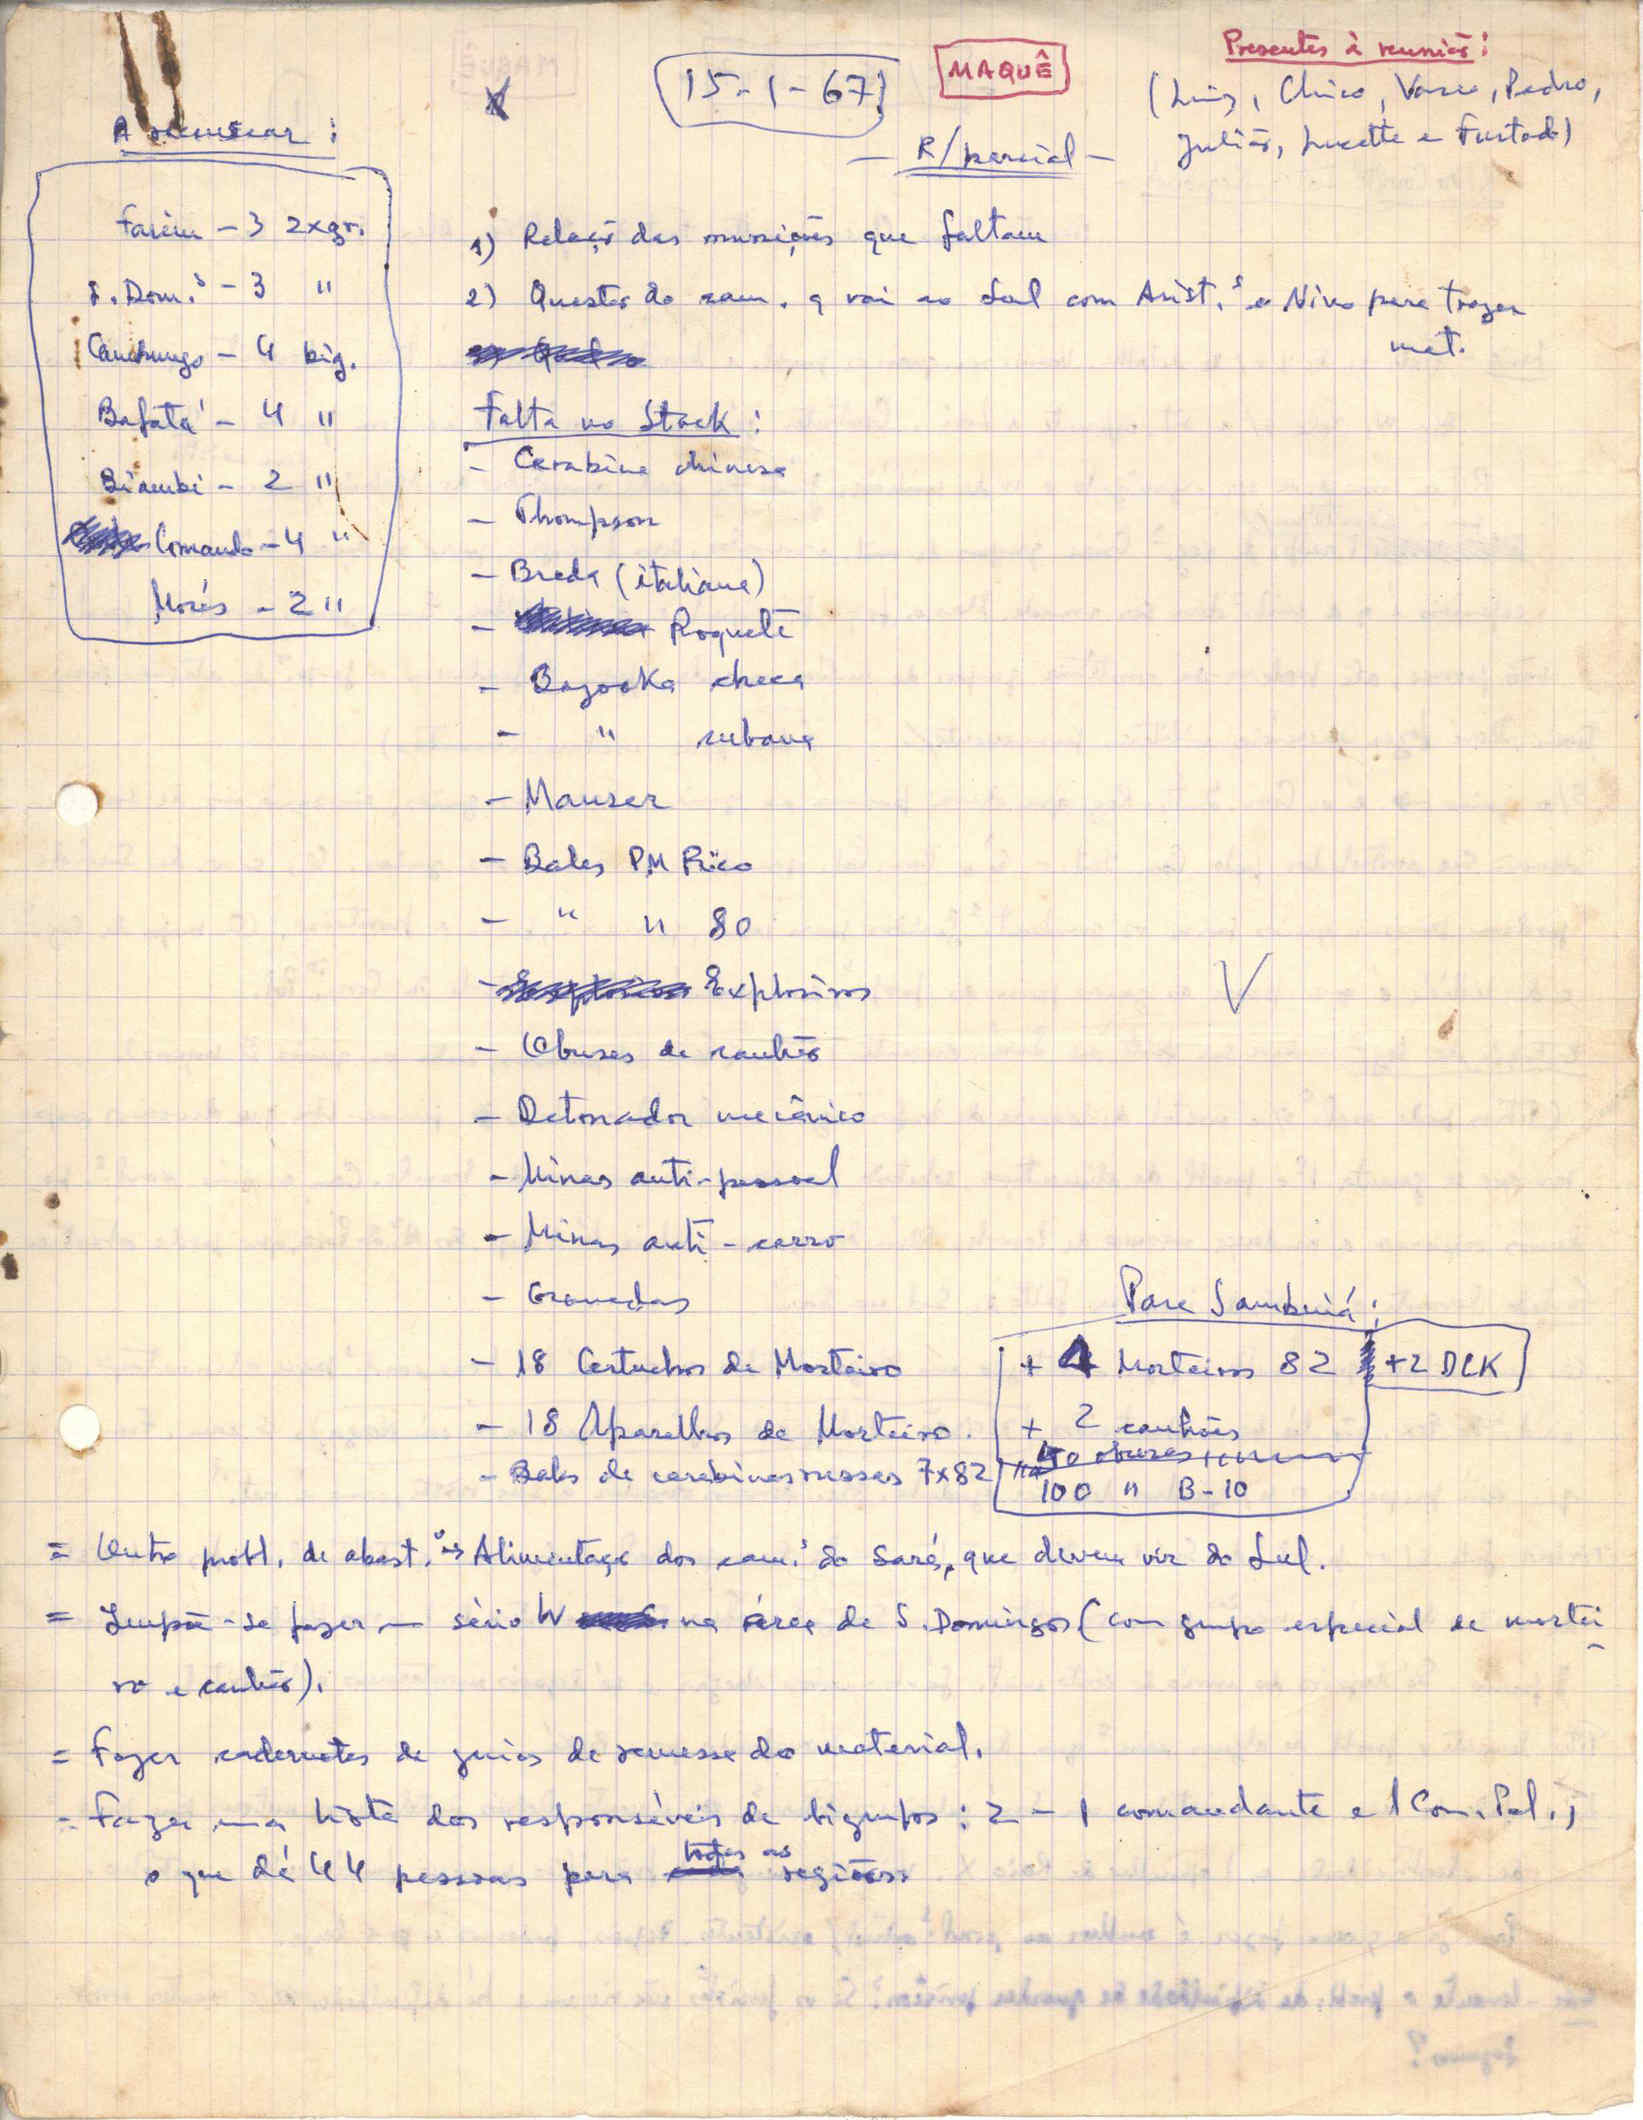 15-1-67
MAQUÊ
Presentes à reunião:
(Luiz, Chico, Vasco, Pedro,
Julião, Lucette e Furtado)
— R/parcial —
A remesear:
Farim - 3 2xgr.
S. Dom.s - 3 "
Canchungo - 4 big.
Bafatá - 4 "
Biambi - 2 "
Comando - 4 "
Morés - 2 "
1) Relaçõ das munições que faltam
2) Questão do cam. q vai ao Sul com Arist.s e Nino para trazer
mat.
Falta no Stock:
- Carabina chinesa
- Thompson
- Breda (italiana)
- Roquete
- Bazooka checa
- " cubana
- Mauser
- Balas PM Rico
- " " 80
- Explosivos
- Obuses de canhão
- Detonador mecânico
- Minas anti-pessoal
- Minas anti-carro
- Granadas
- 18 Cartuchos de Morteiro
- 18 Aparelhos de Morteiro.
- Balas de carabinas russas 7x82
Para Sambuiá:
+ 4 Morteiros 82
+2 DCK
+ 2 canhões
40 obuses
100 " B-10
= Outro probl. de abast.o → Alimentaçõ dos cam.s do Sará, que devem vir do Sul.
= Impõe-se fazer um sério W na área de S. Domingos (com grupo especial de mortei
ro e canhão).
= Fazer cadernetas de guias de remessa do material.
- Fazer uma lista dos responsáveis de bigrupos: 2 - 1 comandante e 1 Com. Pol.,
o que dá 44 pessoas para todas as regiões.